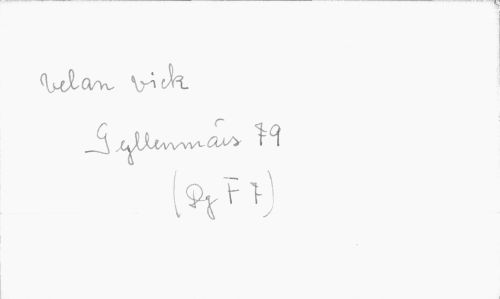 velan vick
Gyllenmårs 79
(Dg F 7)